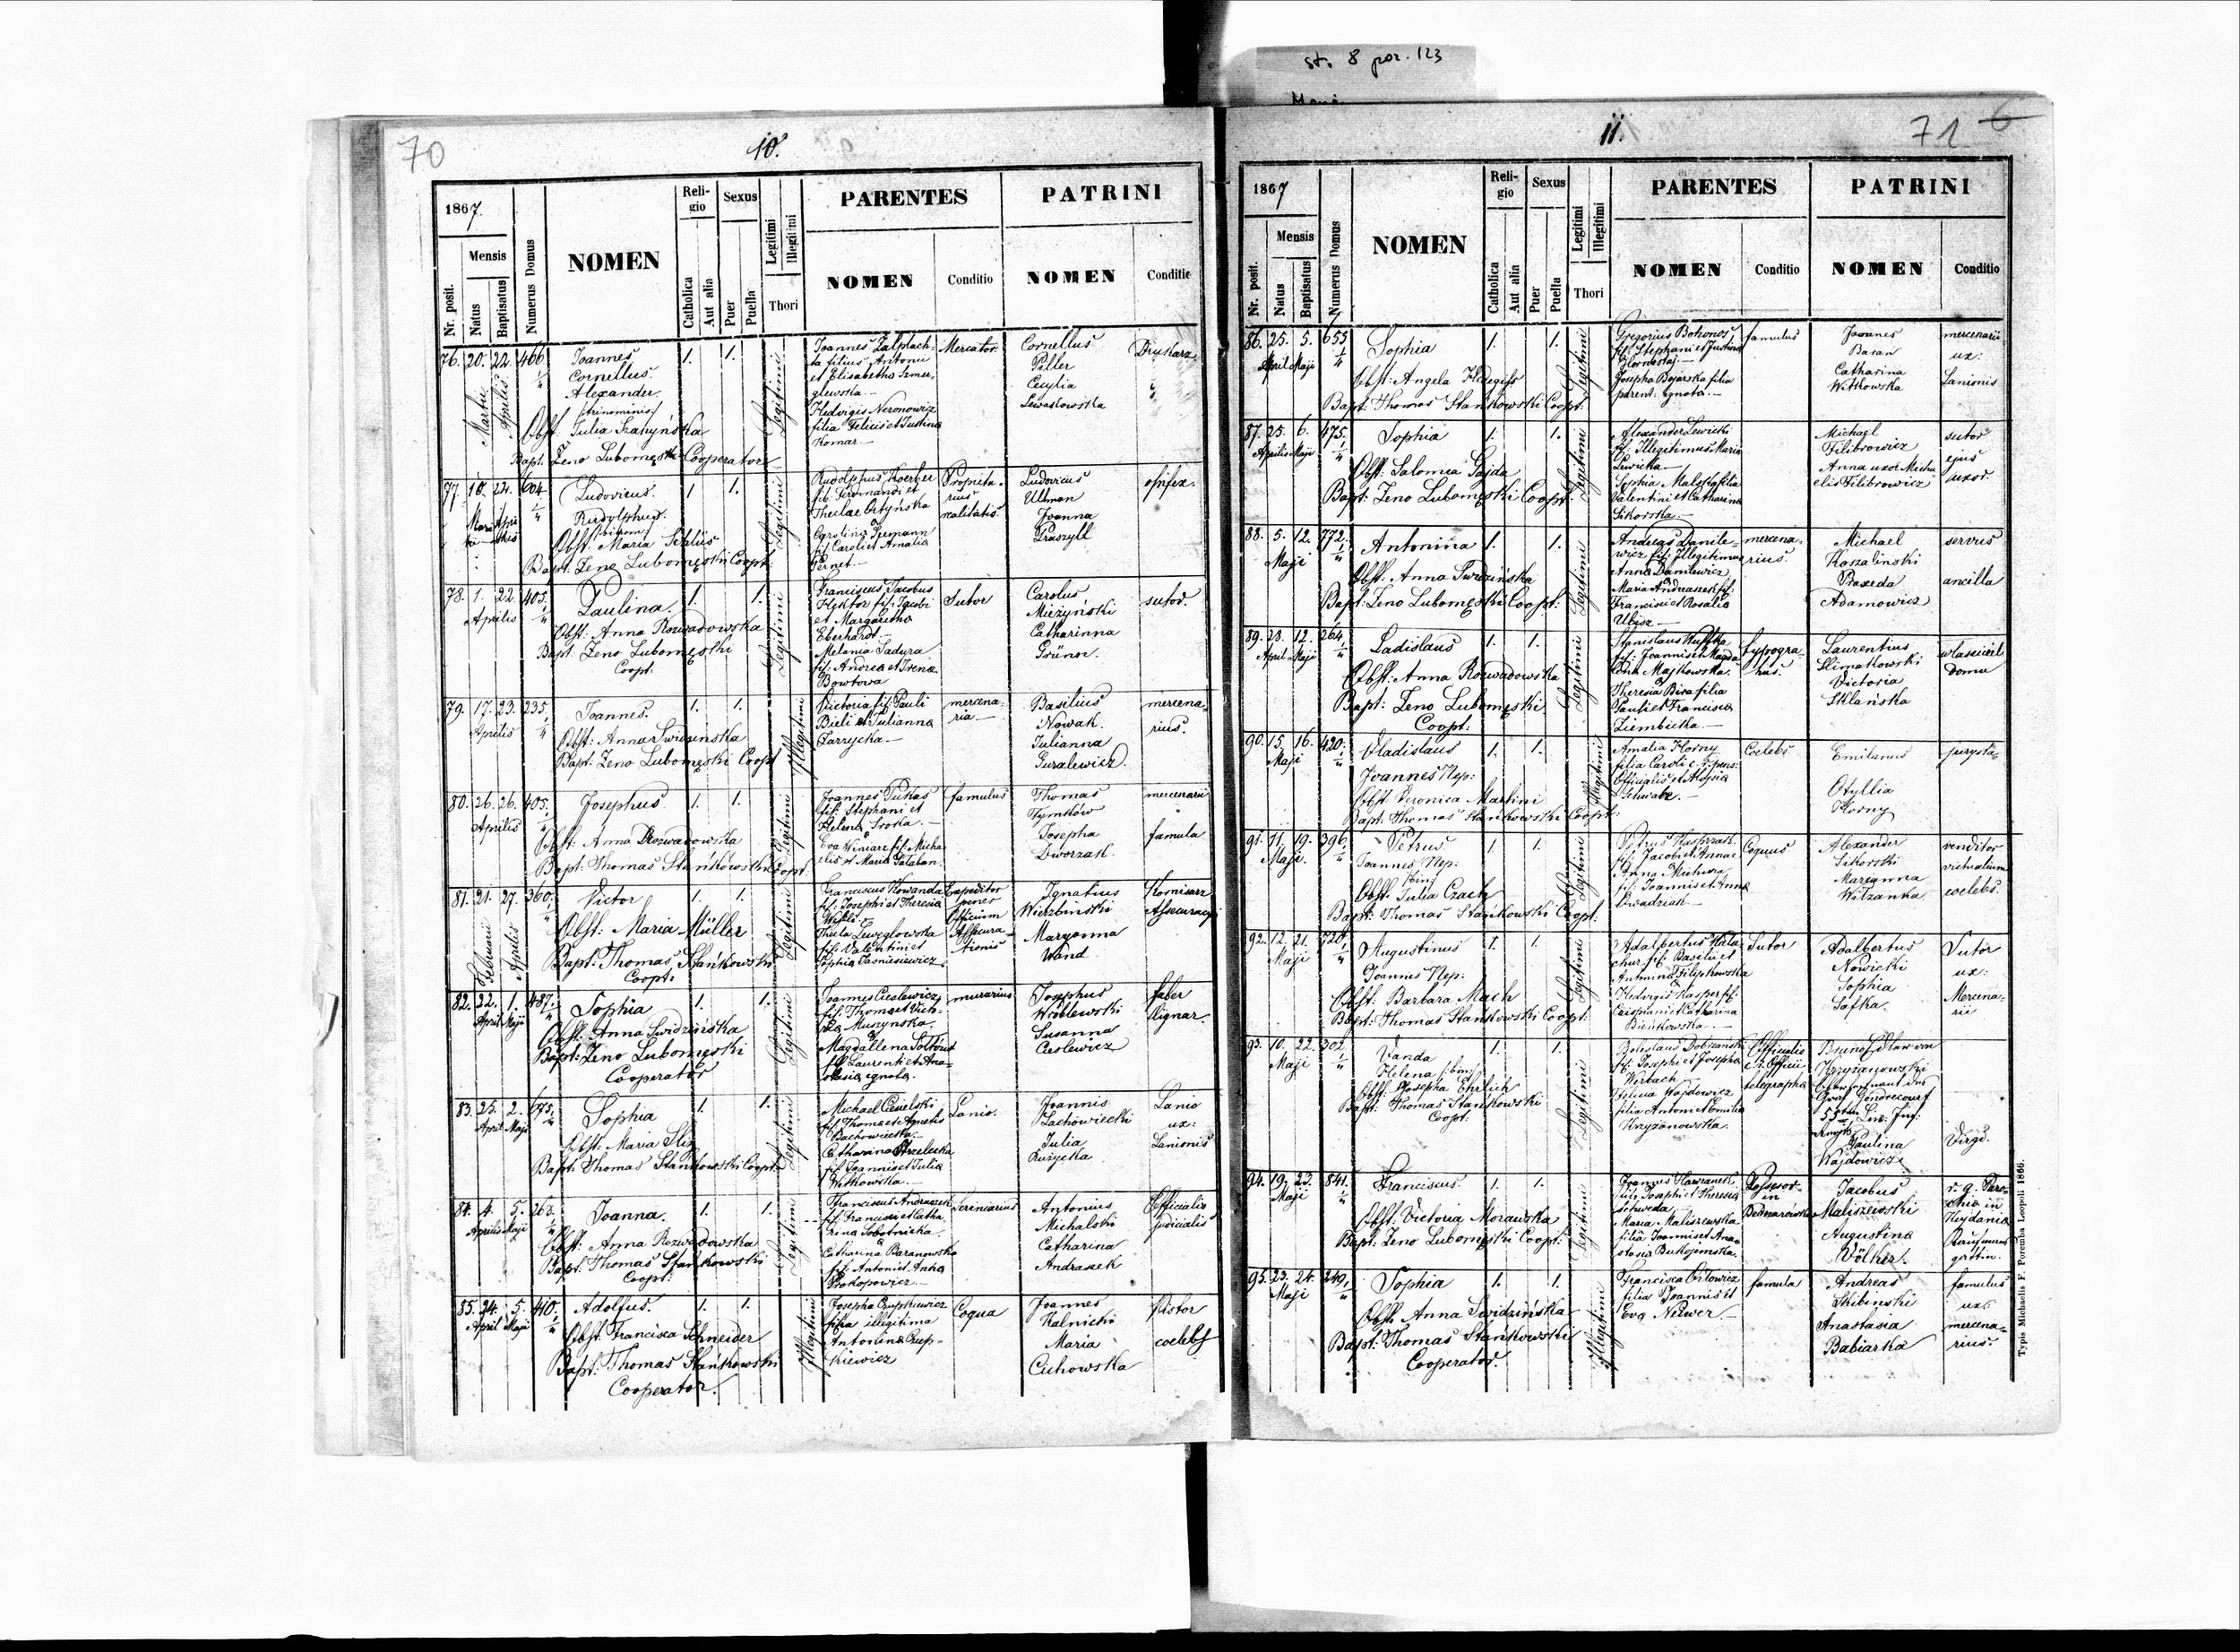 st. 8 poz. 123
70
10.
1867.
Nr. posit.
Mensis
Natus
Baptisatus
Numerus Domus
NOMEN
Religio
Catholica
Aut alia
Sexus
Puer
Puella
Legitimi
Illegitimi
Thori
PARENTES
NOMEN
Conditio
PATRINI
NOMEN
Conditio
76. 20. Martii 22. Aprilis 466.
Joannes
Cornellus
Alexander
trinominis
Obst. Julia
Bapt. Zeno Lubomęski Cooperator
1. 1.
Legitimi
Joannes
filius Antonii
et Elisabetha
Hedvigis Neronowicz
filia Felicis et Justina
Komar
Mercator
Cornellus
Piller
Cecylia
Lewaskowska
Drukarz
77. 18. 22. 604.
Ludovicus.
Rudolphus.
Obst. Maria
Bapt. Zeno Lubomęski Coopt.
1 1.
Legitimi
Rudolphus Koerber
fil: Ferdinandi et
Theclae
Carolina
fil. Caroli et Amalia
Pernet
realitatis
Ludovicus
Ullman
Joanna
Praszyll
opifex.
78. 1. 22. Aprilis 405.
Paulina.
Obst: Anna Rozwadowska
Bapt: Zeno Lubomęski
Coopt.
1. 1.
Legitimi
Franciscus Jacobus
Hektor fil: Jacobi
et Margaretha
Eberhardt
Melania Sadura
fil: Andrea et Irena
Bowtowa
Sutor
Carolus
Miczyński
Catharinna
Grüner.
sutor.
79. 17. 23. Aprilis 235.
Joannes.
Obst: Anna Swidzinska
Bapt: Zeno Lubomęski Coopt
1. 1.
Illegitimi
Victoria fil. Pauli
Bieli et Julianna
Zarzycka
mercenaria.
Basilius
Nowak.
Julianna
Guralewicz.
mercenarius.
80. 26. 26. Aprilis 405.
Josephus.
Obst: Anna Rozwadowska
Bapt: Thomas Stańkowski Coopt.
1. 1.
Legitimi
Joannes Pukas
fil: Stephani et
Helena Sroka.
Eva Winiarz fil. Michaelis et Maria
famulus
Thomas
Tymków
Josepha
Dworzak.
mercenarii
famula
81. 21. Februarii 27. Aprilis 360.
Victor
Obst. Maria Müller
Bapt: Thomas Stańkowski
Coopt:
1. 1.
Legitimi
Franciscus Kowanda
fil: Josephi et Theresia
Thecla
fil: Valentini et
Sophia Jasnieniewicz
Expeditor
penes
Officium
Assecurationis
Ignatius
Wierzbinski
Maryanna
Wand
Komisarz
82. 22. April 1. Maji 487.
Sophia
Obst: Anna Swidzinska
Bapt: Zeno Lubomęski
Cooperator
1. 1.
Legitimi
Joannes Cieslewicz
fil. Thomae et
Muszynska.
Magdallena
fil. Laurenti et Anastasia ignota.
murarius
Josephus
Wróblewski
Susanna
Cieslewicz
faber
lignar.
83. 25. April 2. Maji 675.
Sophia
Obst: Maria
Bapt: Thomas Stańkowski Coopt.
1. 1.
Legitimi
Michael Cesielski
fil: Thomae et Agnetis
Pachowiecka
Catharina Strzelecka
fil: Joannis et Julia
Witkowska.
Lanio.
Joannis
Pachowiecki
Julia
Ruzycka
Lanio
ux:
Lanionis
84. 4. Aprilis 5. Maji 263.
Joanna.
Obst. Anna Rozwadowska
Bapt. Thomas Stańkowski
Coopt:
1. 1.
Legitimi
Franciscus Andraszek
fil: Francisci et Catharina Sobotnicka
Catharina Baranowska
fil. Antoni et Anna
Prokopowicz
Antonius
Michalski
Catharina
Andraszek
Officialis
judicialis
85. 24. April 5. Maji 410.
Adolfus.
Obst. Francisca Schneider
Bapt: Thomas Stańkowski
Cooperator.
1. 1.
Illegitimi
Josepha Czupkiewicz
filia illegitima
Antonina Czupkiewicz
Coqua
Joannes
Kalnicki
Maria
Cichowska
pistor
coelebs
71
11.
1867
Nr. posit.
Mensis
Natus
Baptisatus
Numerus Domus
NOMEN
Religio
Catholica
Aut alia
Sexus
Puer
Puella
Legitimi
Illegitimi
Thori
PARENTES
NOMEN
Conditio
PATRINI
NOMEN
Conditio
86. 25. April 5. Maji 655
Sophia
Obst: Angela
Bapt: Thomas Stańkowski Coopt.
1. 1.
Legitimi
Gregorius Bohonos
fil. Stephani et Justina
Josepha Bojarska filia
parent: ignota.
famulus
Joannes
Baran
Catharina
Witkowska
mercenarii
ux:
Lanionis
87. 25. Aprilis 6. Maji 475.
Sophia
Obst. Salomea Gajda
Bapt: Zeno Lubomęski Coopt.
1. 1.
Legitimi
Alexander Lewicki
fil: Illegitimus Maria
Lewicka
Sophia Malska filia
Valentini et Catharina
Sikorska.
Michael
Filibrowicz
Anna uxor Michaelis Filibrowicz
sutor
ejus
uxor.
88. 5. 12. Maji 772.
Antonina
Obst. Anna Swidzińska
Bapt: Zeno Lubomęski Coopt:
1. 1.
Legitimi
Andreas Danilewicz fil: Illegitimus
Anna Danilewicz
Maria Andraszek fil:
Francisci et Rosalia
mercenarius.
Michael
Koszalinski
Praxeda
Adamowicz
servus
ancilla
89. 28. April 12. Maji 264.
Ladislaus
Obst: Anna Rozwadowska
Bapt: Zeno Lubomęski
Coopt.
1. 1.
Legitimi
Stanislaus
fil: Joannis et Magdalena Majkowska.
Theresia Bisa filia
Pauli et Francisca
Ziembicka
typographus.
Laurentius
Klimatkowski
Victoria
Sklańska
wlasciciel
domu
90. 15. 16. Maji 420.
Vladislaus
Joannes Nep:
Obst. Veronica Martini
Bapt: Thomas Stańkowski Coopt:
1. 1.
Illegitimi
Amalia Korny
filia Caroli
Officialis et Aloysia
Schwabe.
Coelebs
Emilianus
Otyllia
Korny
jurysta
91. 11. 19. Maji 396.
Petrus
Joannes Nep:
Obst. Julia Czach
Bapt: Thomas Stańkowski Coopt.
1. 1.
Legitimi
Petrus Kasprzak.
fil: Jacobi et Annae
Anna Michna
fil: Joannis et Anna
Coquus
Alexander
Sikorski
Marianna
Witzanka
venditor
victualium
coelebs.
92. 12. 21. Maji 720.
Augustinus
Joannes Nep:
Obst: Barbara Mach
Bapt: Thomas Stańkowski Coopt.
1. 1.
Legitimi
Adalbertus
fil: Basilii et
Antonina Filipkowska
Hedvigis Kasper fil:
Crispiani et Catharina
Bieńkowska.
Sutor
Adalbertus
Nowicki
Sophia
Safka.
Sutor
ux:
Mercenarii
93. 10. 22. Maji 302.
Vanda
Helena
Obst: Josepha Ehrlich
Bapt: Thomas Stańkowski
Coopt.
1. 1.
Legitimi
Boleslaus Dobrzanski
fil: Josephi et Josepha
Werbach
Helena Wajdowicz
filia Antoni et Emilia
Krzyżanowska.
Officialis
c. r. Officii
telegrapha
Bruno Edler von
Krzyżanowski
Graf Gondrecourt
Paulina
Wajdowicz
Virgo.
94. 19. 23. Maji 841.
Franciscus.
Obst: Victoria Morawska
Bapt: Zeno Lubomęski Coopt:
1. 1.
Legitimi
Joannes Hawranek
fil: Josephi et Theresia
Schweda
Maria Maliszewska
filia Joannis et Anastasia Bukojemska.
Possesor
in
Bednarowka
Jacobus
Maliszewski
Augustina
Völker.
Kaufmansgattin.
95. 23. 24. Maji 249.
Sophia
Obst: Anna Swidzińska
Bapt: Thomas Stańkowski
Cooperator.
1. 1.
Illegitimi
Francisca Orlowicz
filia Joannis et
Eva Niewer.
famula
Andreas
Skibinski
Anastasia
Babiarka
famulus
ux:
mercenarius.
Typis Michaelis F. Poremba Leopoli 1866.